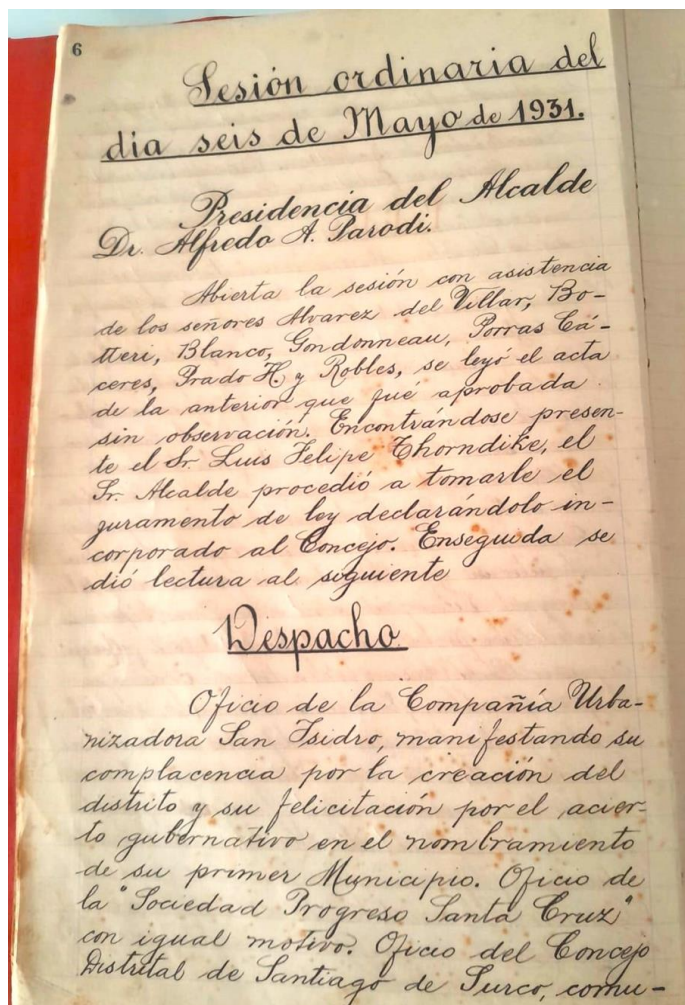 6
Sesión ordinaria del
dia seis de Mayo de 1931.
Presidencia del Alcalde
Dr. Alfredo A. Parodi.
Abierta la sesión con asistencia
de los señores Alvarez del Villar, Bo-
tteri, Blanco, Gondonneau, Porras Cá-
ceres, Prado H. y Robles, se leyó el acta
de la anterior que fué aprobada
sin observación. Encontrándose presen-
te el Sr. Luis Felipe Thorndike, el
Sr. Alcalde procedió a tomarle el
juramento de ley declarándolo in-
corporado al Concejo. Enseguida se
dió lectura al siguiente
Despacho
Oficio de la Compañía Urba-
nizadora San Isidro, manifestando su
complacencia por la creación del
distrito y su felicitación por el acier-
to gubernativo en el nombramiento
de su primer Municipio. Oficio de
la "Sociedad Progreso Santa Cruz"
con igual motivo. Oficio del Concejo
Distrital de Santiago de Surco, comu-